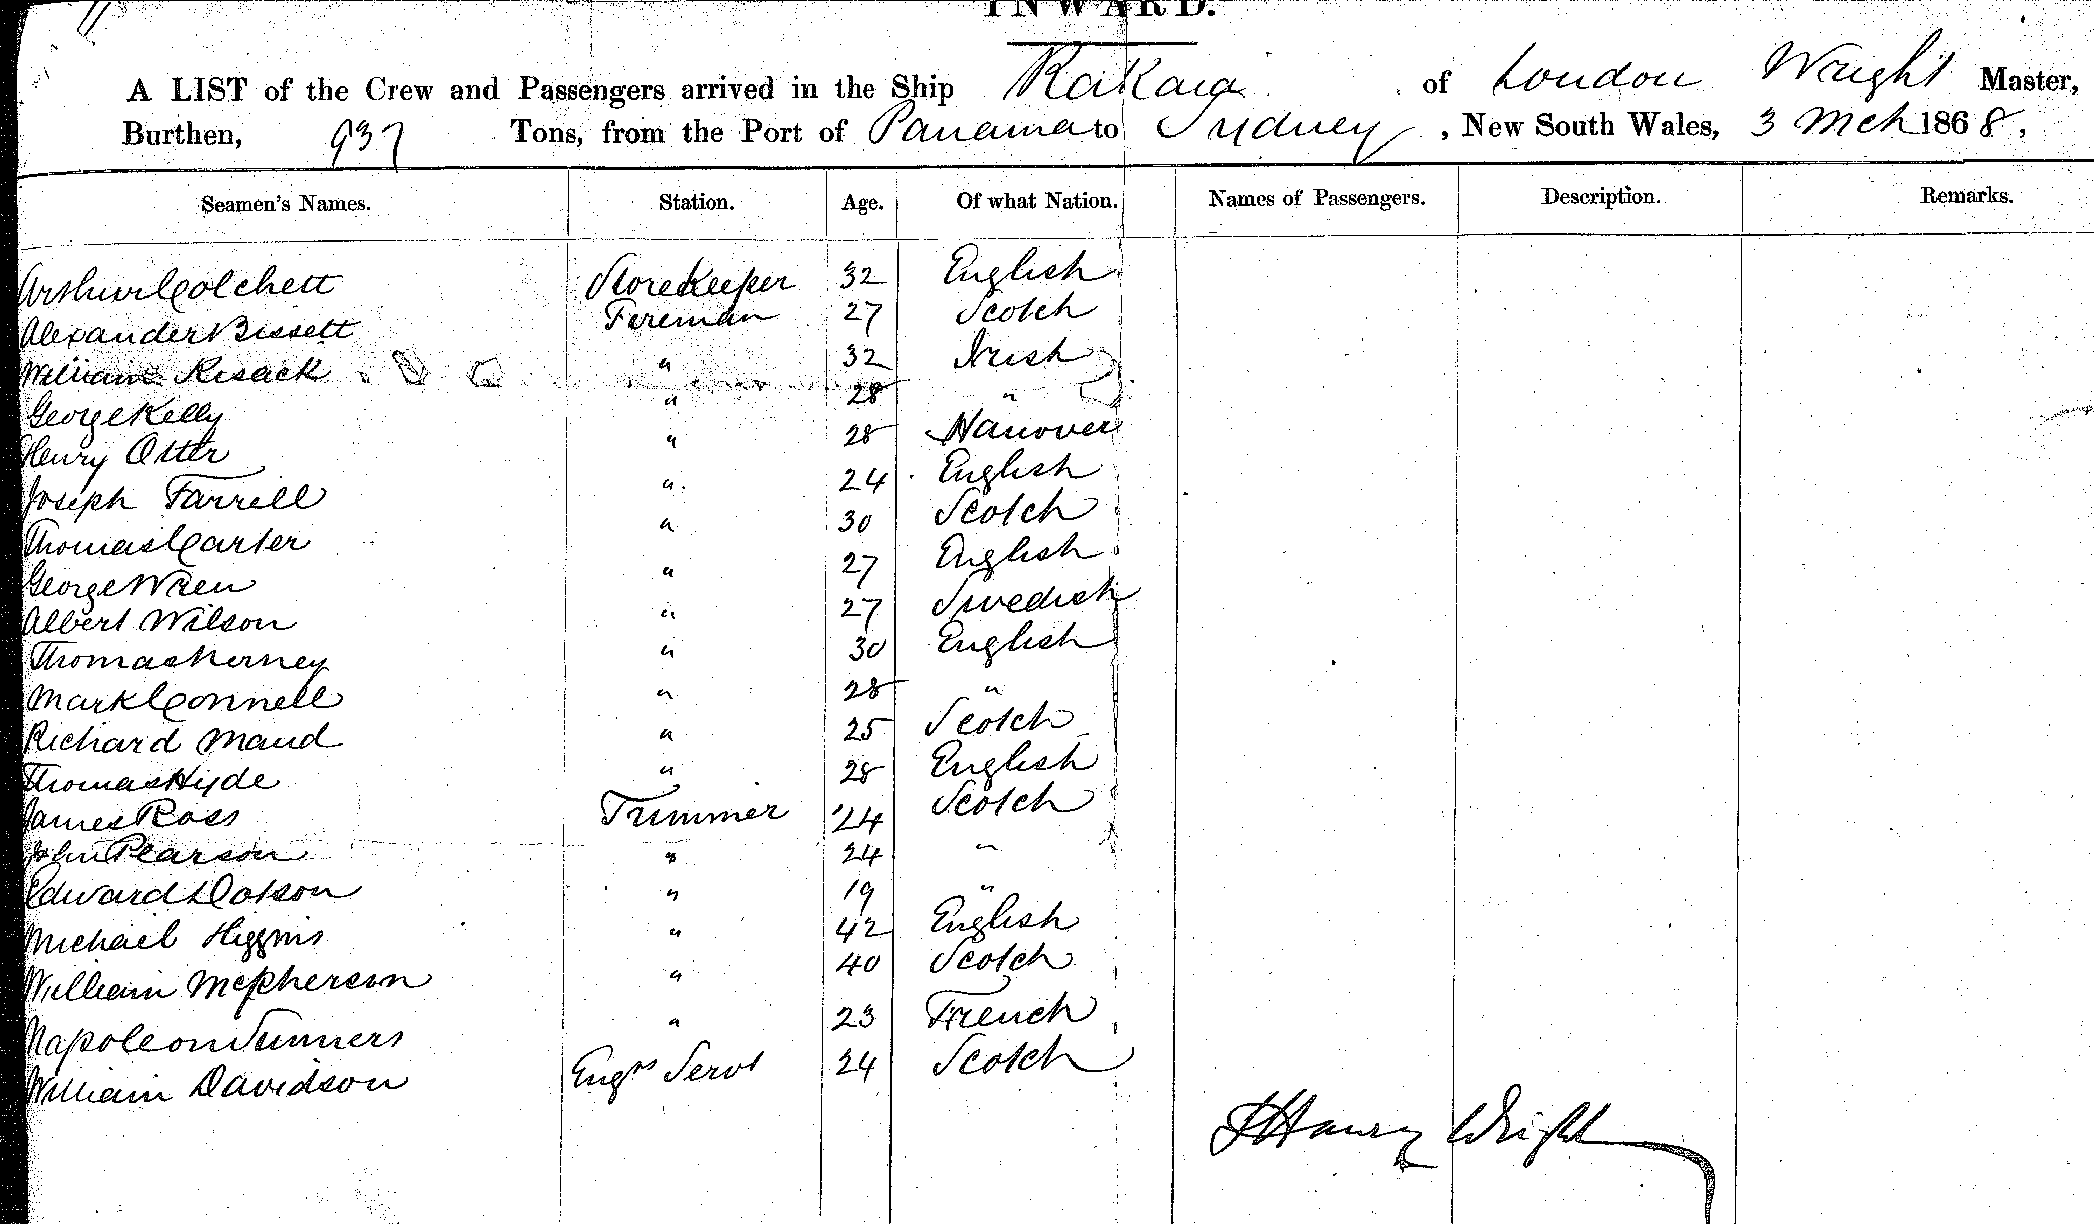 INWARD.
A LIST of the Crew and Passengers arrived in the Ship Rakaia of London Wright Master,
Burthen, 937 Tons, from the Port of Panama to Sydney, New South Wales, 3 Mch 1868,
Seamen's Names. Station. Age. Of what Nation. Names of Passengers. Description. Remarks.
Arthur Colchett Storekeeper 32 English
Alexander Bissett Fireman 27 Scotch
William Kisack " 32 Irish
George Kelly " 28 "
Henry Otter " 28 Hanover
Joseph Farrell " 24 English
Thomas Carter " 30 Scotch
George Wren " 27 English
Albert Wilson " 27 Swedish
Thomas Nerney " 30 English
Mark Connell " 28 "
Richard Maud " 25 Scotch
Thomas Hyde " 28 English
James Ross Trimmer 24 Scotch
John Pearson " 24 "
Edward Dotson " 19 "
Michael Higgins " 42 English
William McPherson " 40 Scotch
Napoleon Sumners " 23 French
William Davidson Engrs Servt 24 Scotch
J Henry Wright